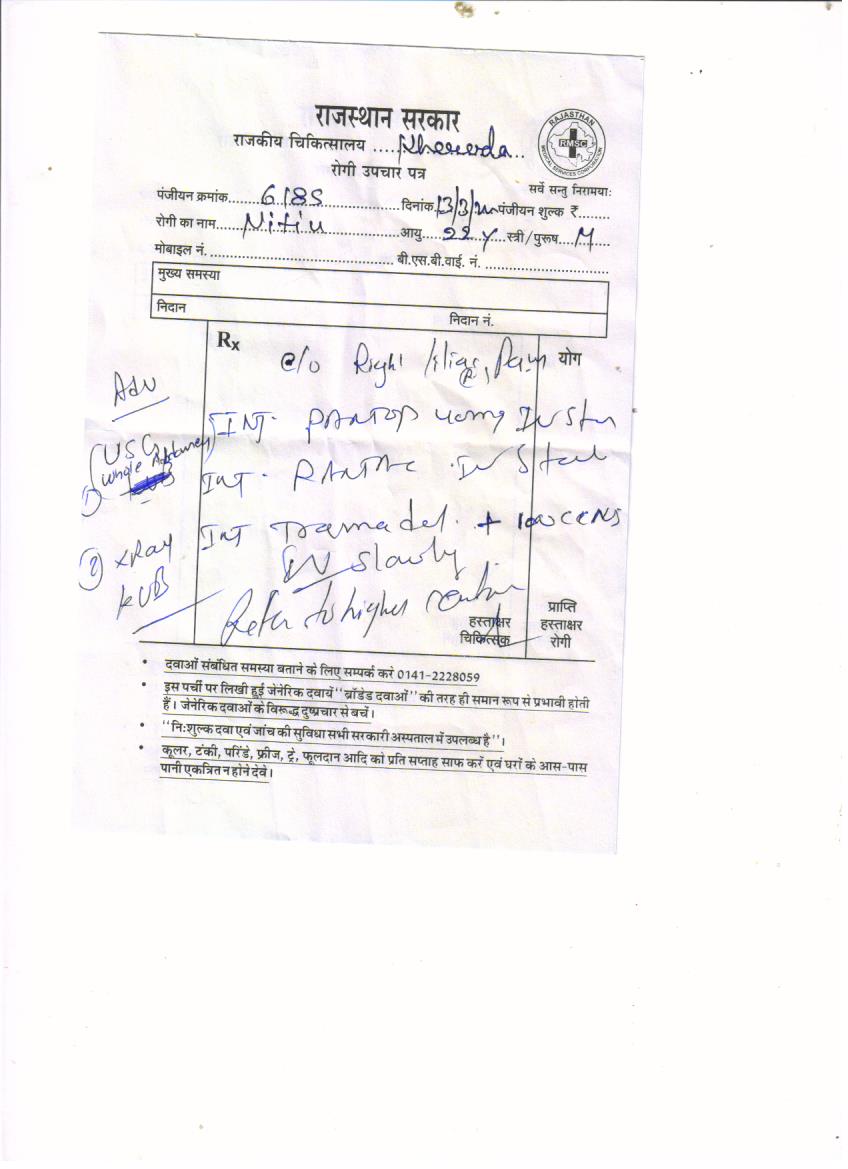 राजस्थान सरकार
राजकीय चिकित्सालय ....Kheeerda..
रोगी उपचार पत्र
RAJASTHAN
RMSC
MEDICAL SERVICES CORPORATION
सर्वे सन्तु निरामयाः
पंजीयन क्रमांक.......6185..................दिनांक 13/3/20 पंजीयन शुल्क ₹.......
रोगी का नाम.....Nitin..................आयु.....22 y.....स्त्री/पुरूष....M.....
मोबाइल नं. .......................................... बी.एस.बी.वाई. नं. ............................
मुख्य समस्या
निदान
निदान नं.
Rx
c/o Right iliac Pain
योग
Adv
INJ. PANTOP 40mg IV Stat
① USG
Whole Abdomen
INJ. RANTAC IV Stat
INJ Tramadol. + 100cc NS
IV slowly
② XRay
KUB
Refer to higher
हस्ताक्षर
चिकित्सक
प्राप्ति
हस्ताक्षर
रोगी
• दवाओं संबंधित समस्या बताने के लिए सम्पर्क करें 0141-2228059
• इस पर्ची पर लिखी हुई जेनेरिक दवायें "ब्रॉडेड दवाओं" की तरह ही समान रूप से प्रभावी होती
हैं। जेनेरिक दवाओं के विरूद्ध दुष्प्रचार से बचें।
• "निःशुल्क दवा एवं जांच की सुविधा सभी सरकारी अस्पताल में उपलब्ध है"।
• कूलर, टंकी, परिंडे, फ्रीज, ट्रे, फूलदान आदि को प्रति सप्ताह साफ करें एवं घरों के आस-पास
पानी एकत्रित न होने देवे।